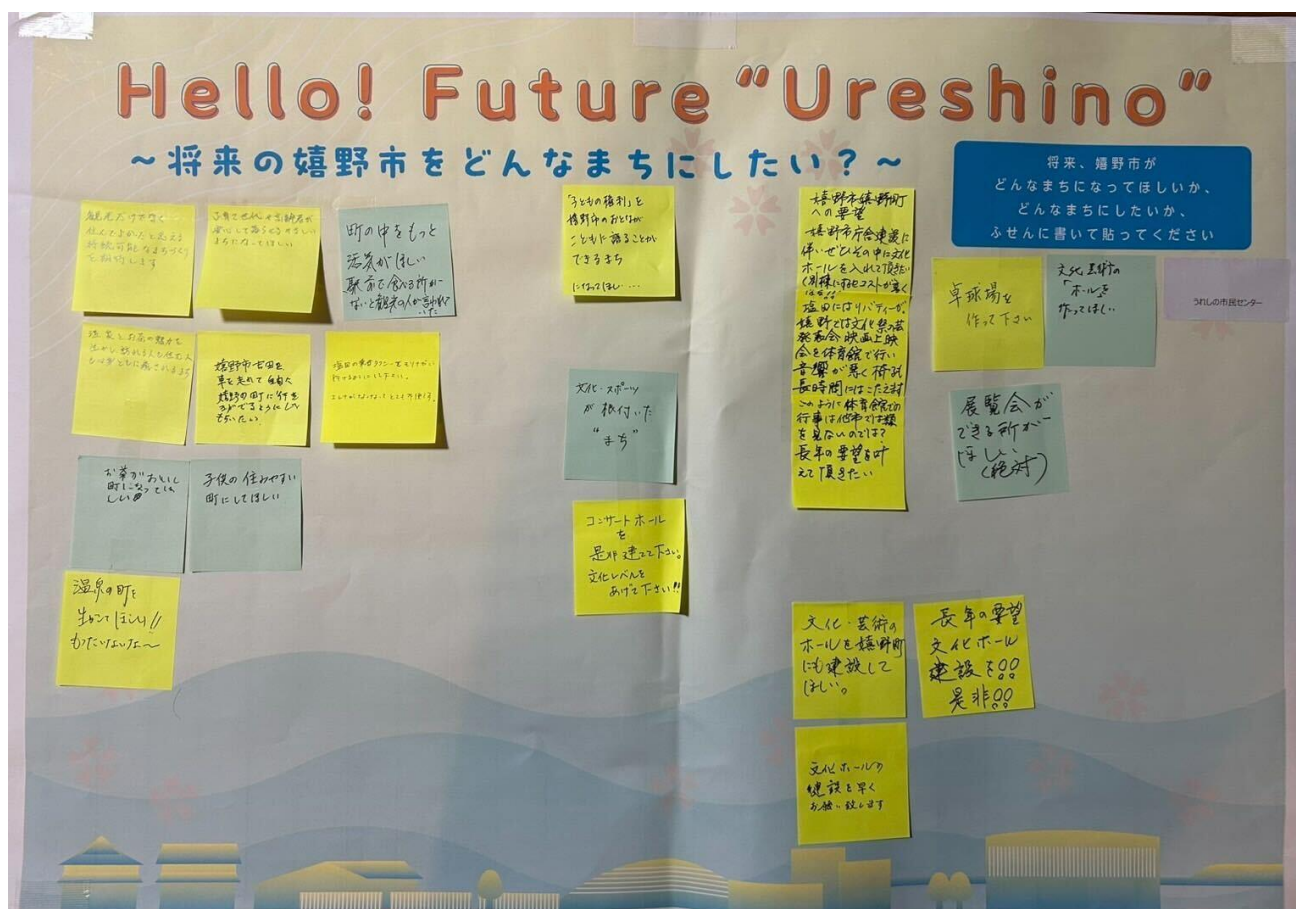 Hello! Future "Ureshino"
~将来の嬉野市をどんなまちにしたい?~
将来、嬉野市が
どんなまちになってほしいか、
どんなまちにしたいか、
ふせんに書いて貼ってください
うれしの市民センター
観光だけでなく
住んでよかったと思える
持続可能なまちづくり
を
子育て世代や高齢者が
安心して暮らせるやさしい
まちになってほしい
町の中をもっと
活気がほしい
駅前で食べる所が
ないと観光の人が言われて
いた
「子どもの権利」を
嬉野市のおとなが
こどもに語ることが
できるまち
になってほしい…
嬉野市嬉野町
への要望
嬉野市庁舎建設に
伴いぜひその中に文化
ホールを入れて頂きたい
(別棟にするとコストが高く
塩田にはリバティーが、
嬉野では文化祭の芸
発表会、映画上映
会を体育館で行い
音響が悪く椅子も
長時間にはこたえます
このように体育館での
行事は他市では類
を見ないのでは?
長年の要望を叶
えて頂きたい
卓球場を
作って下さい
文化芸術の
「ホール」を
作ってほしい
温泉とお茶の魅力を
生かし訪れる人も住む人
も心がともに癒されるまち
嬉野市
車を
嬉野の町に行き
ができるようにして
もらいたい。
塩田の
行けるようにして下さい。
文化・スポーツ
が根付いた
"まち"
展覧会が
できる所が
ほしい
(絶対)
お茶がおいしい
町になってほ
しい
子供の住みやすい
町にしてほしい
コンサートホール
を
是非建てて下さい。
文化レベルを
あげて下さい!!
温泉の町を
生かしてほしい!!
もったいないな〜
文化・芸術の
ホールを嬉野町
にも建設して
ほしい。
長年の要望
文化ホール
建設を!!
是非!!
文化ホールの
建設を早く
お願い致します